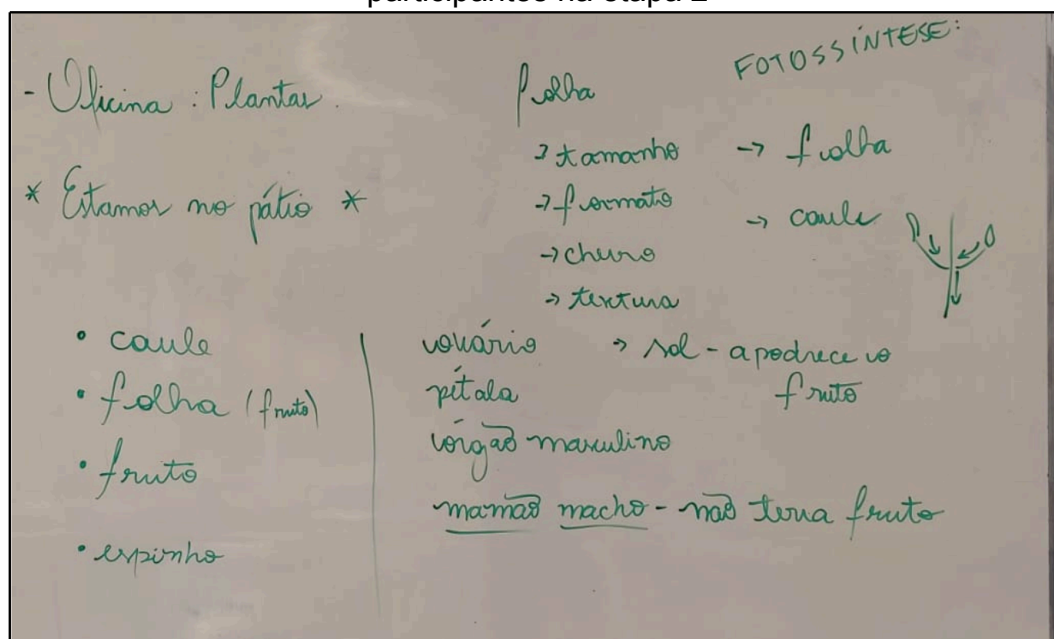 participantes na etapa 2
- Oficina : Plantas.
* Estamos no pátio *
• caule
• folha (fruto)
• fruto
• espinho
folha
→ tamanho
→ formato
→ cheiro
→ textura
FOTOSSÍNTESE:
→ folha
→ caule
ovário
pétala
órgão masculino
mamão macho - não terá fruto
→ sol - apodrece o
fruto